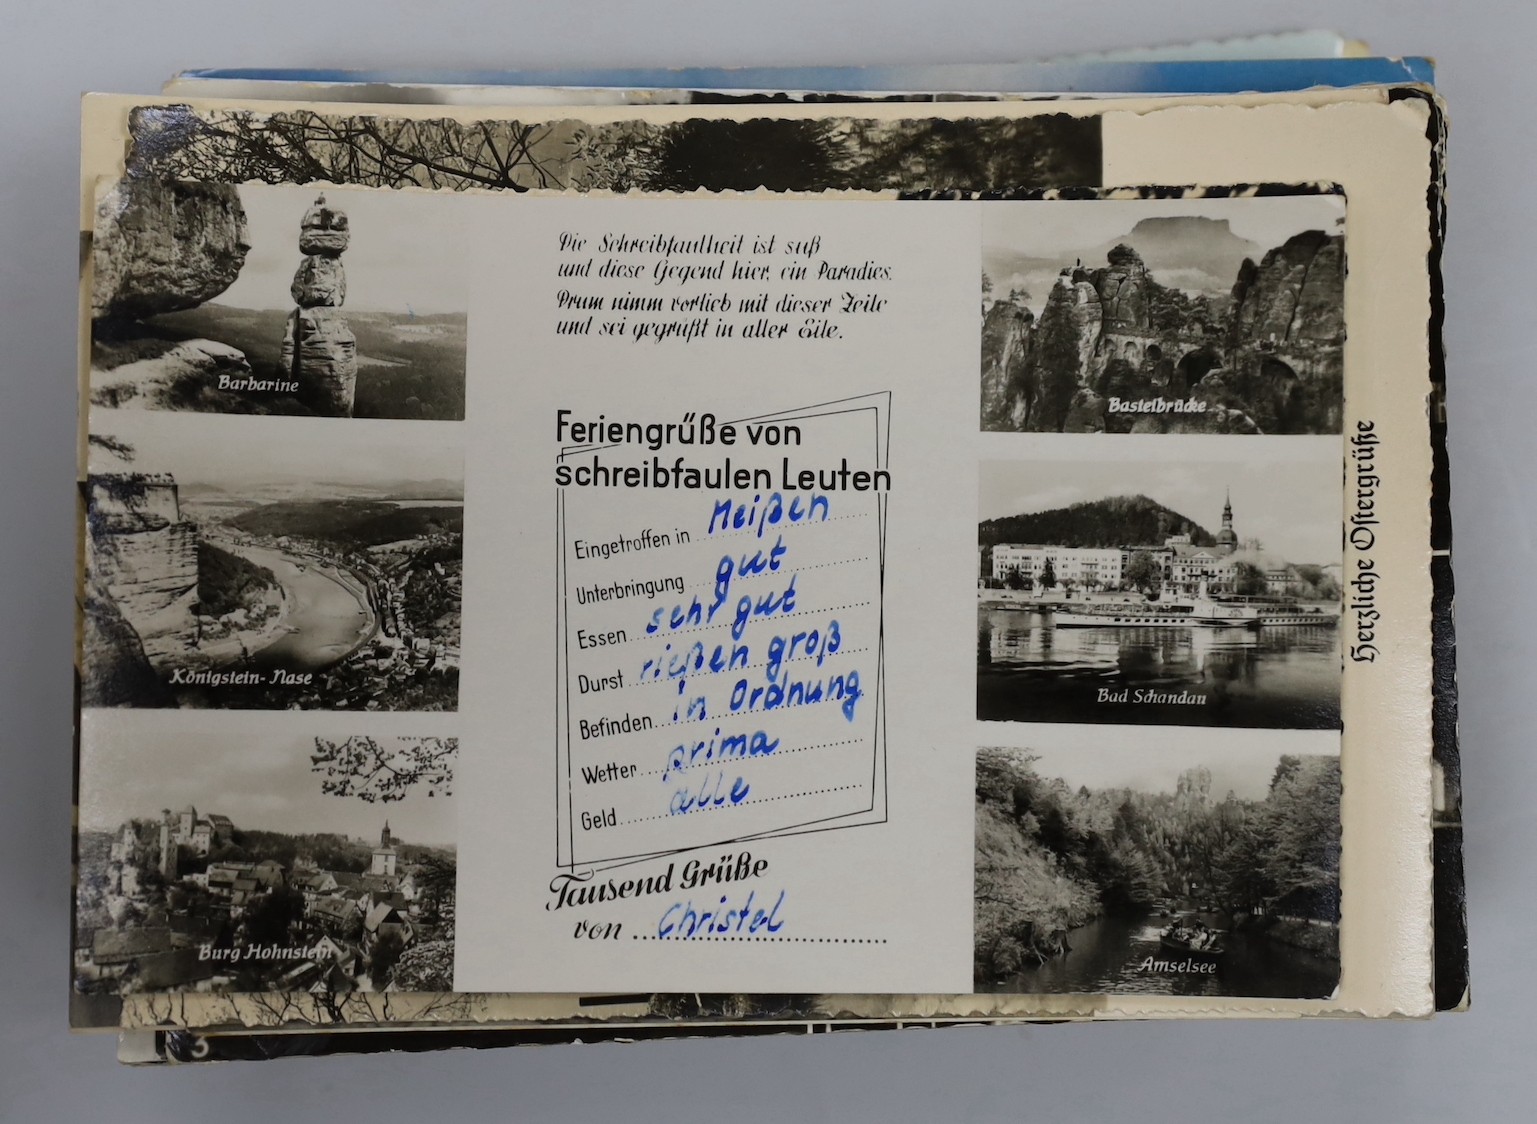 Die Schreibfaulheit ist süß
und diese Gegend hier, ein Paradies.
Drum nimm vorlieb mit dieser Zeile
und sei gegrüßt in aller Eile.
Feriengrüße von
schreibfaulen Leuten
Eingetroffen in Meißen
Unterbringung gut
Essen sehr gut
Durst rießen groß
Befinden in Ordnung
Wetter prima
Geld alle
Tausend Grüße
von Christel
Barbarine
Königstein-Nase
Burg Hohnstein
Basteibrücke
Bad Schandau
Amselsee
Herzliche Ostergrüße
3